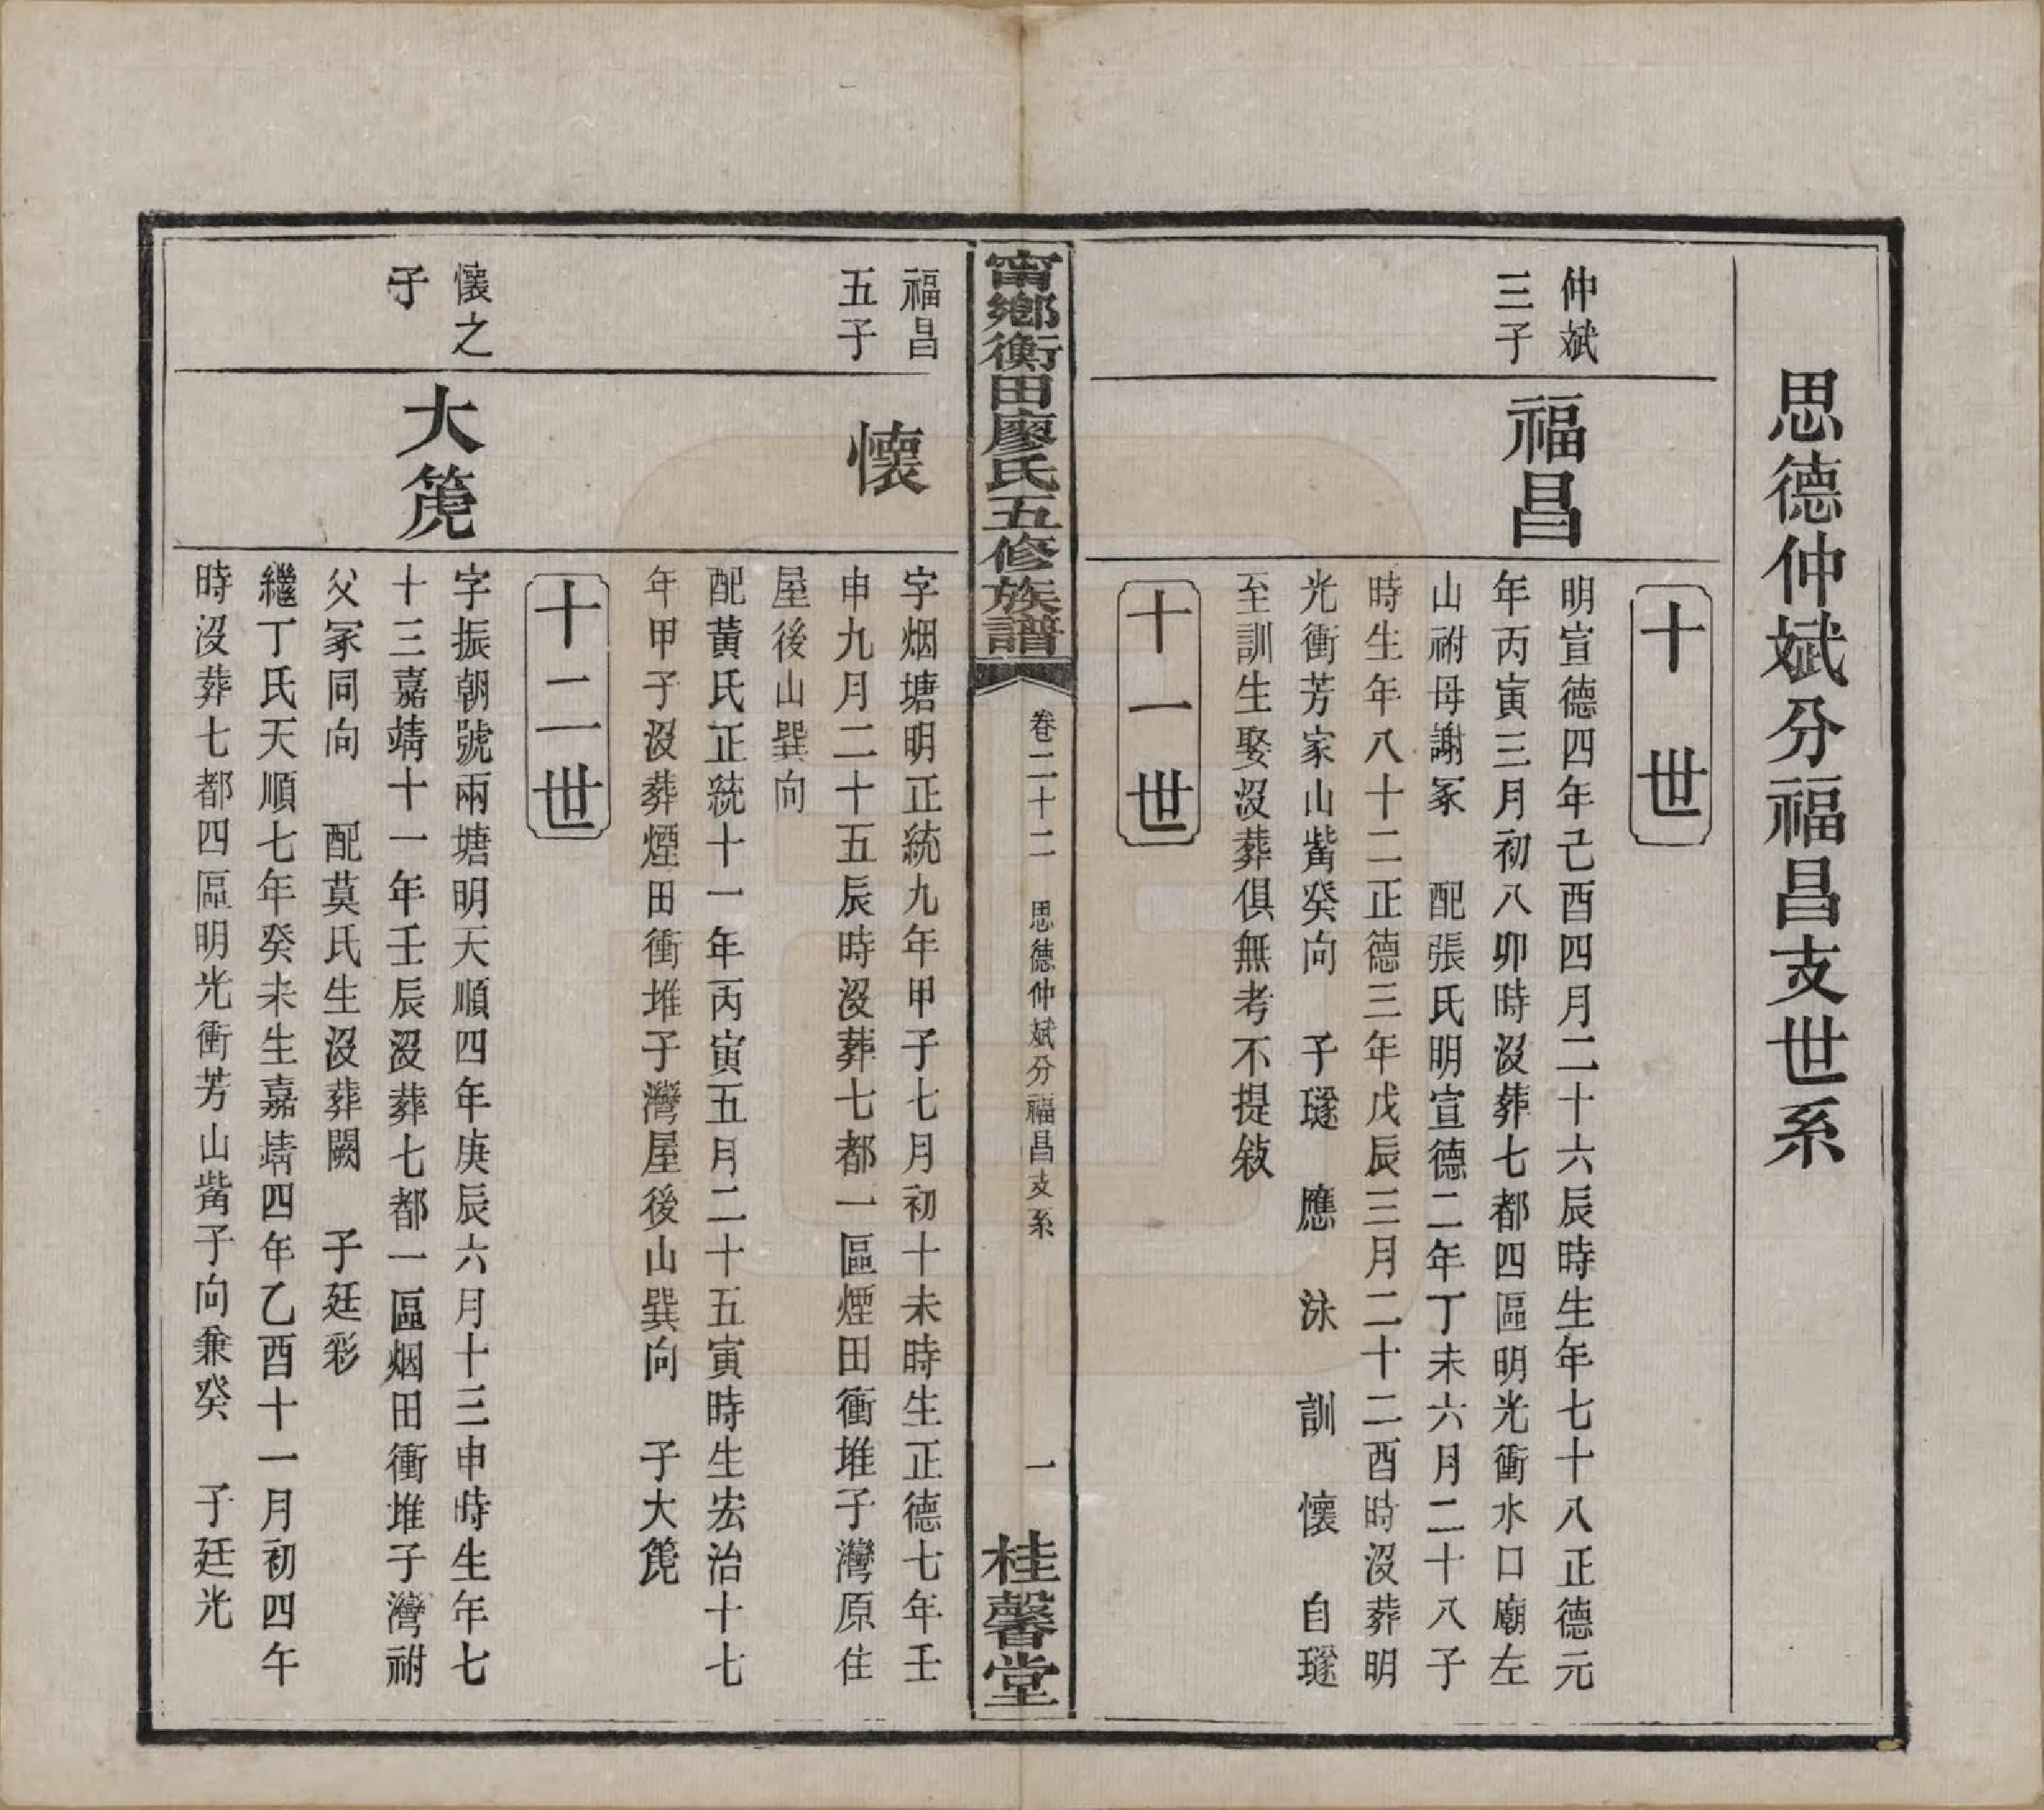 思德仲斌分福昌支世系
十世
仲斌
三子
福昌
明宣德四年己酉四月二十六辰時生年七十八正德元
年丙寅三月初八卯時沒葬七都四區明光衝水口廟左
山祔母謝冢　配張氏明宣德二年丁未六月二十八子
時生年八十二正德三年戊辰三月二十二酉時沒葬明
光衝芳家山觜癸向　子璲　應　泳　訓　懷　自璲
至訓生娶沒葬俱無考不提敍
十一世
甯鄉衡田廖氏五修族譜
卷二十二　思德仲斌分福昌支系
一
桂馨堂
福昌
五子
懷
字烟塘明正統九年甲子七月初十未時生正德七年壬
申九月二十五辰時沒葬七都一區煙田衝堆子灣原住
屋後山巽向
配黃氏正統十一年丙寅五月二十五寅時生宏治十七
年甲子沒葬煙田衝堆子灣屋後山巽向　子大箎
十二世
懷之
子
大箎
字振朝號兩塘明天順四年庚辰六月十三申時生年七
十三嘉靖十一年壬辰沒葬七都一區烟田衝堆子灣祔
父冢同向　配莫氏生沒葬闕　子廷彩
繼丁氏天順七年癸未生嘉靖四年乙酉十一月初四午
時沒葬七都四區明光衝芳山觜子向兼癸　子廷光